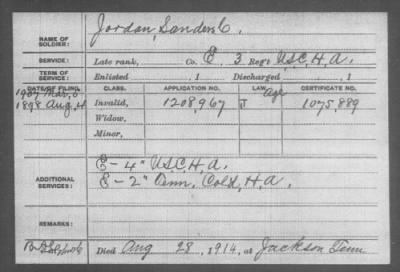 NAME OF SOLDIER: Jordan, Sanders C.
SERVICE: Late rank, Co. E. 3 Reg't U.S.C.H.A.
TERM OF SERVICE: Enlisted , 1 Discharged , 1
DATE OF FILING. CLASS. APPLICATION NO. LAW. CERTIFICATE NO.
1907 Mar. 6 Age
1898 Aug. 4 Invalid, 1208,967 J 1075,889
Widow,
Minor,
E-4" U.S.C.H.A.
ADDITIONAL SERVICES: E-2" Tenn. Cold. H.A.
REMARKS:
Died Aug 28, 1914, at Jackson Tenn